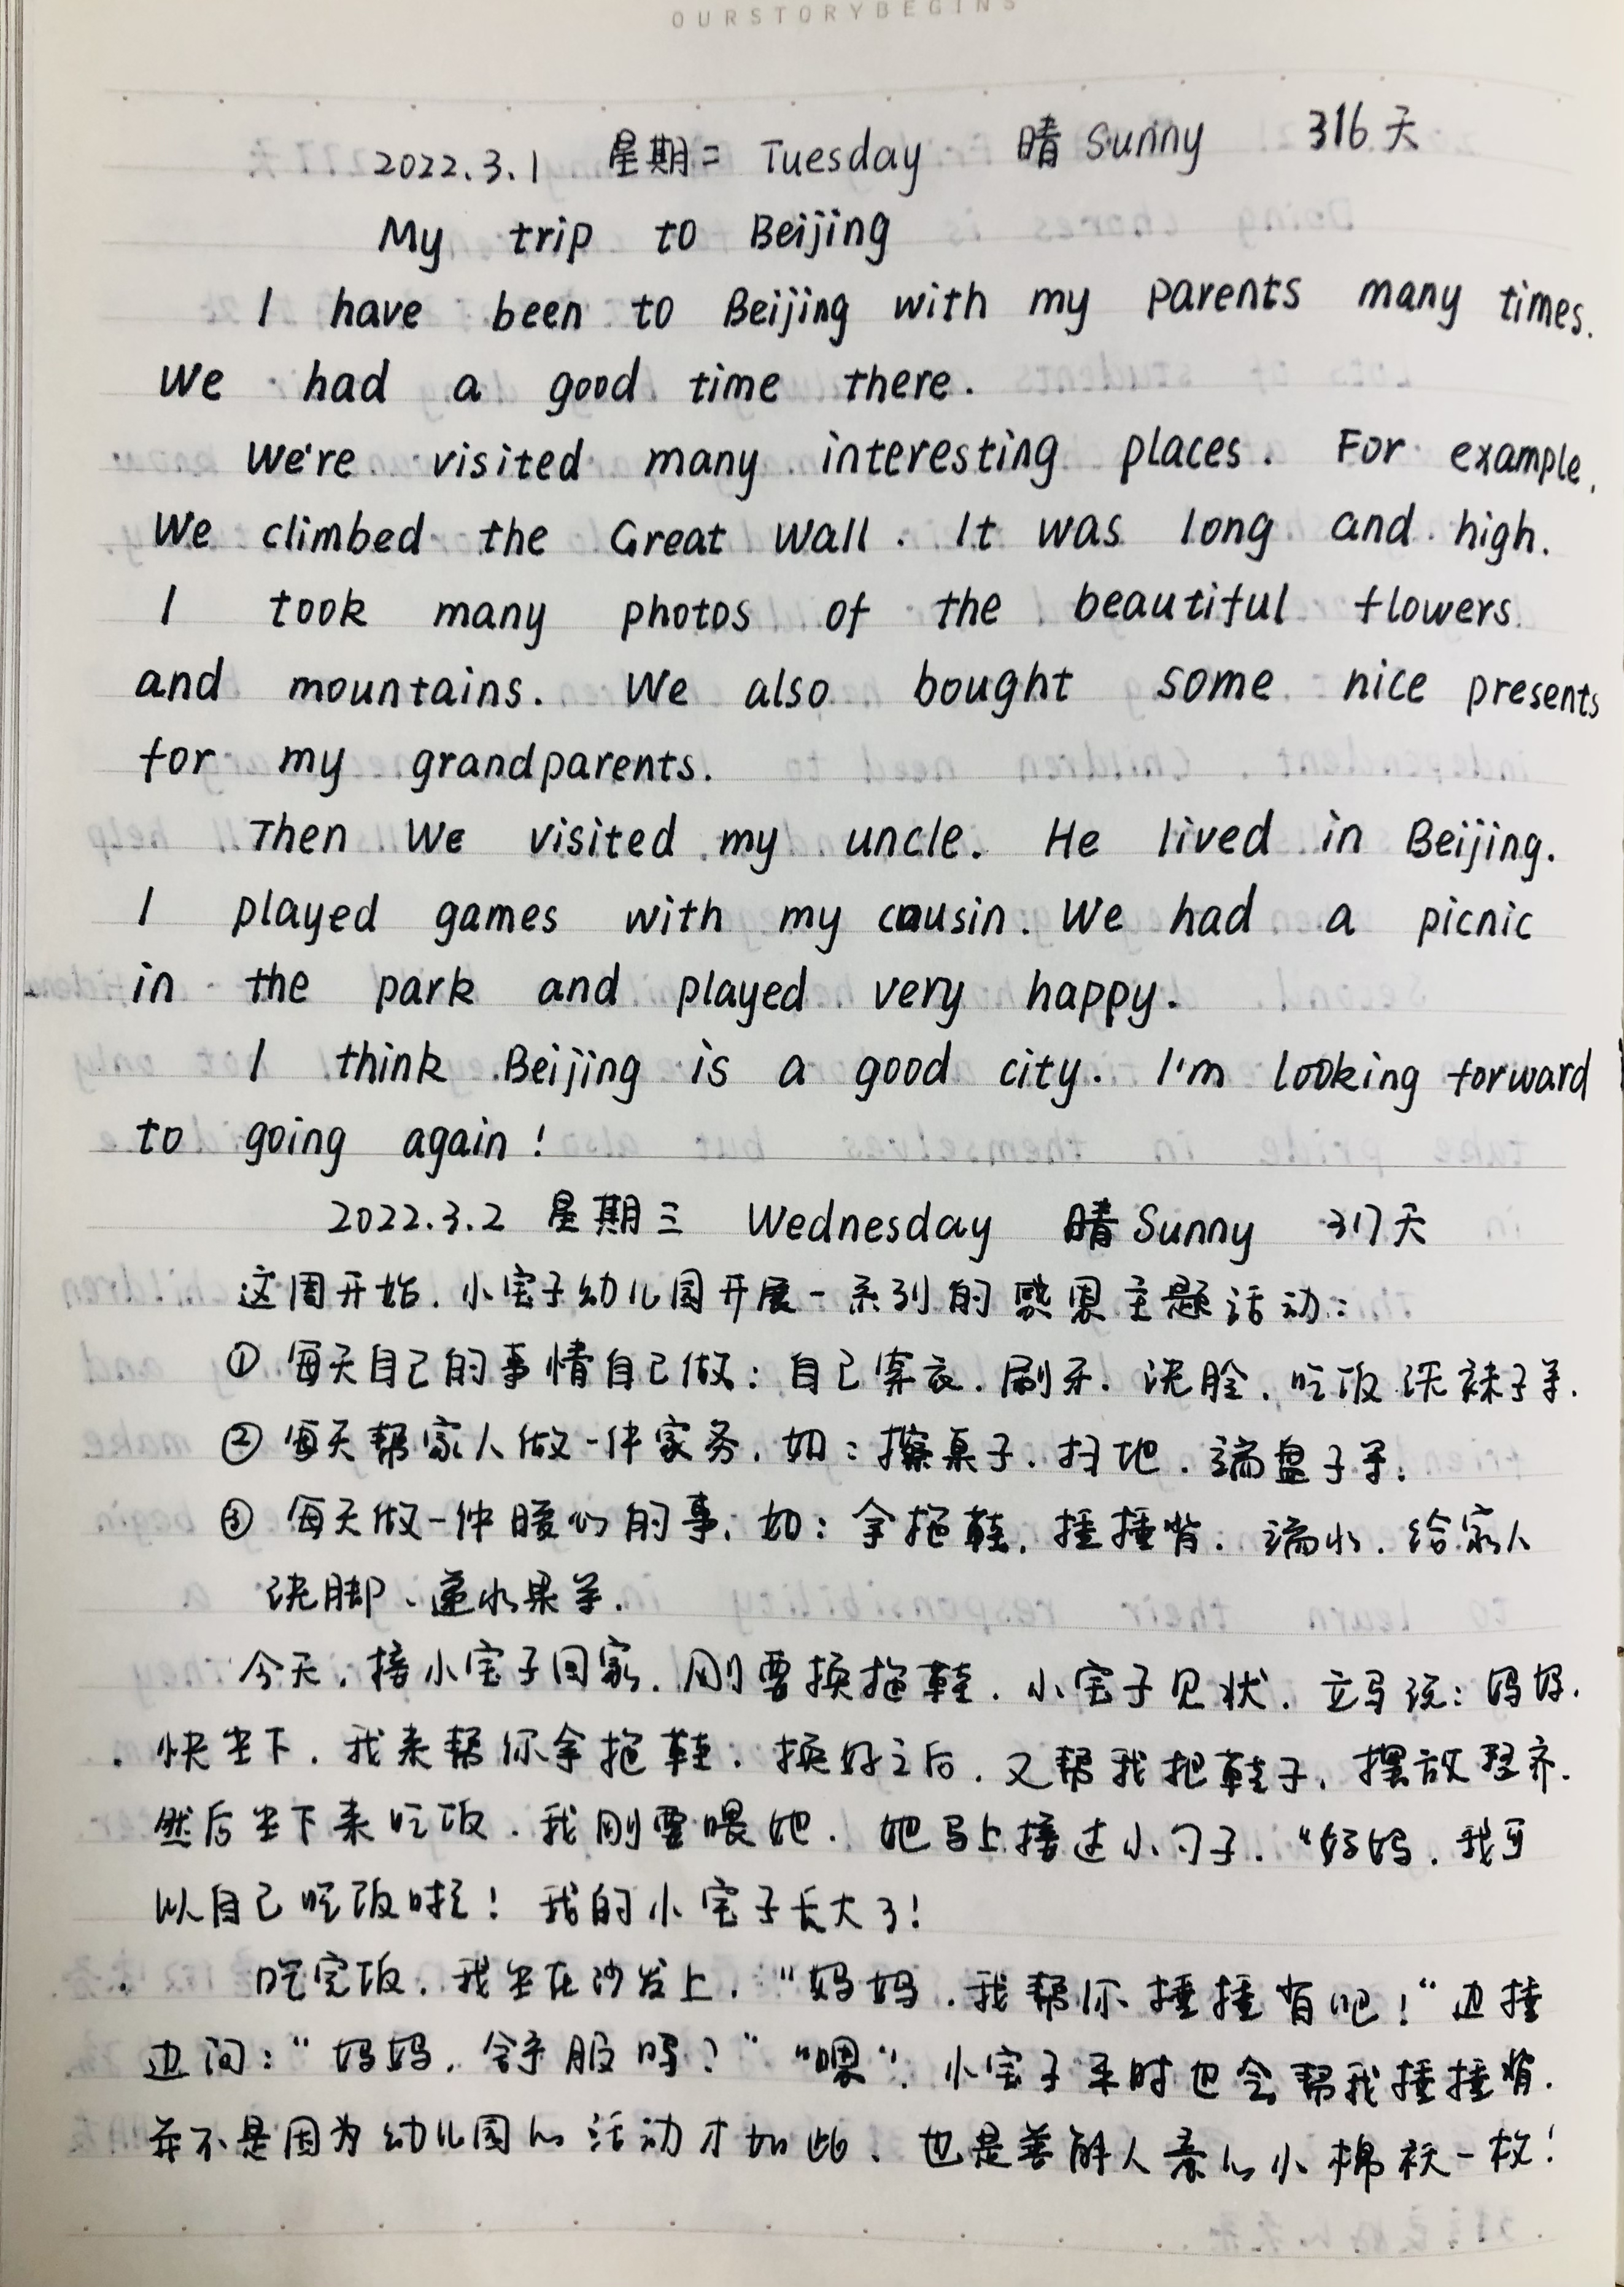 OURSTORYBEGINS
2022.3.1 星期二 Tuesday 晴 Sunny 316天
My trip to Beijing
I have been to Beijing with my parents many times.
We had a good time there.
We're visited many interesting places. For example,
We climbed the Great Wall. It was long and high.
I took many photos of the beautiful flowers
and mountains. We also bought some nice presents
for my grandparents.
Then We visited my uncle. He lived in Beijing.
I played games with my cousin. We had a picnic
in the park and played very happy.
I think Beijing is a good city. I'm looking forward
to going again!
2022.3.2 星期三 Wednesday 晴 Sunny 317天
这周开始,小宝子幼儿园开展一系列的感恩主题活动:
① 每天自己的事情自己做:自己穿衣、刷牙、洗脸、吃饭洗袜子等.
② 每天帮家人做一件家务,如:擦桌子、扫地、端盘子等.
③ 每天做一件暖心的事,如:拿拖鞋,捶捶背、端水、给家人
洗脚、递水果等.
今天,接小宝子回家,刚要换拖鞋,小宝子见状,立马说:妈妈,
快坐下,我来帮你拿拖鞋,换好之后,又帮我把鞋子,摆放整齐.
然后坐下来吃饭,我刚要喂她,她马上接过小勺子,"妈妈,我可
以自己吃饭啦!我的小宝子长大了!
吃完饭,我坐在沙发上,"妈妈,我帮你捶捶背吧!"边捶
边问:"妈妈,舒服吗?""嗯",小宝子平时也会帮我捶捶背,
并不是因为幼儿园的活动才如此,也是善解人意的小棉袄一枚!